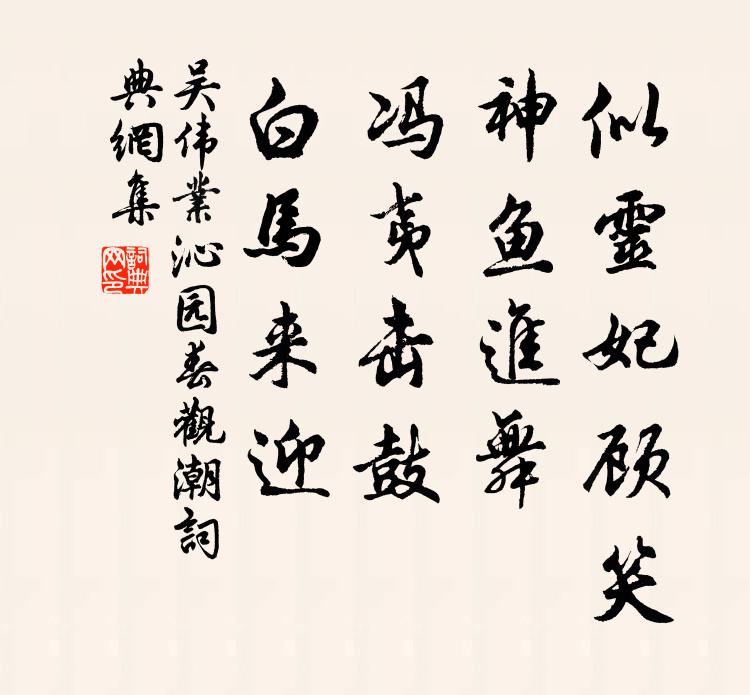 似靈妃顾笑
神鱼進舞
冯夷击鼓
白馬来迎
吴伟業沁园春觀潮詞
典網集
詞典
网印